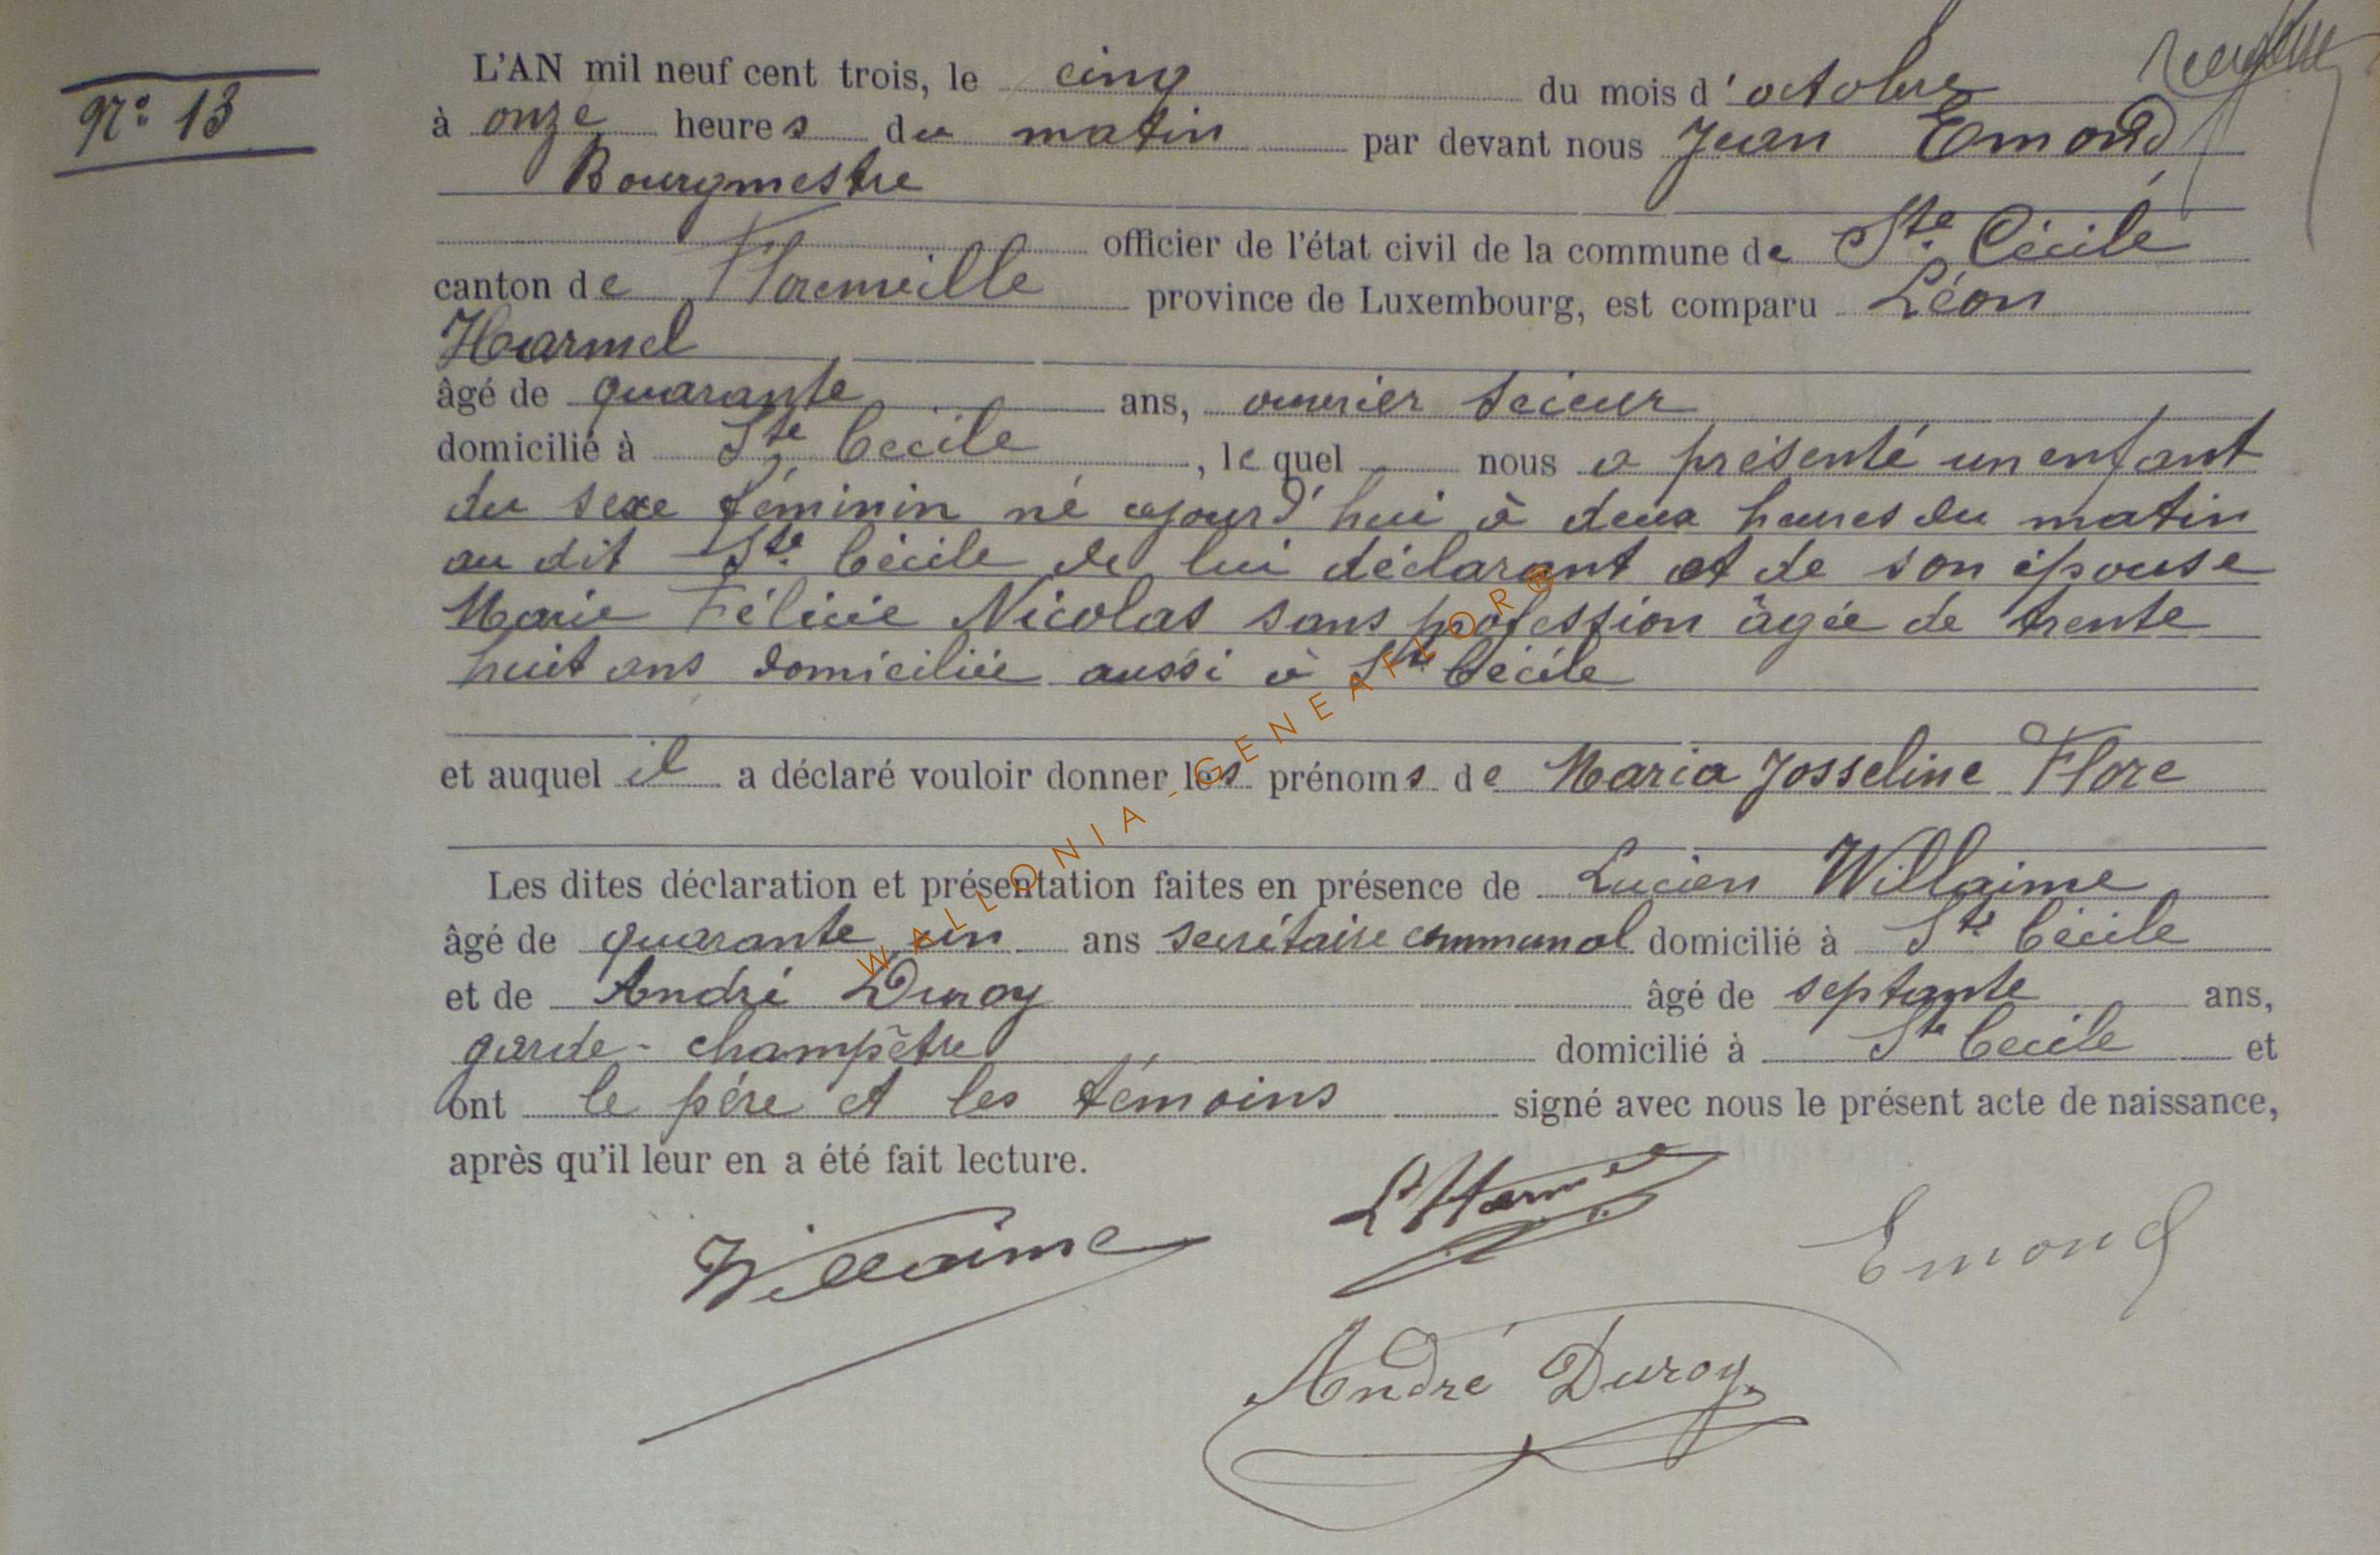 N° 13
L'AN mil neuf cent trois, le cinq du mois d'octobre
à onze heures du matin par devant nous Jean Emond
Bourgmestre
officier de l'état civil de la commune de Ste Cécile
canton de Florenville province de Luxembourg, est comparu Léon
Harmel
âgé de quarante ans, ouvrier scieur
domicilié à Ste Cecile, lequel nous a présenté un enfant
du sexe féminin né ajourd'hui à deux heures du matin
au dit Ste Cécile de lui déclarant et de son épouse
Marie Félicie Nicolas sans profession âgée de trente
huit ans domiciliée aussi à Ste Cécile
et auquel il a déclaré vouloir donner les prénoms de Maria Josseline Flore
Les dites déclaration et présentation faites en présence de Lucien Willaime
âgé de quarante un ans secrétaire communal domicilié à Ste Cécile
et de André Duroy âgé de septante ans,
garde-champêtre domicilié à Ste Cecile et
ont le père et les témoins signé avec nous le présent acte de naissance,
après qu'il leur en a été fait lecture.
Willaime
L Harmel
Emond
André Duroy
WALLONIA - GENEAFLOR®